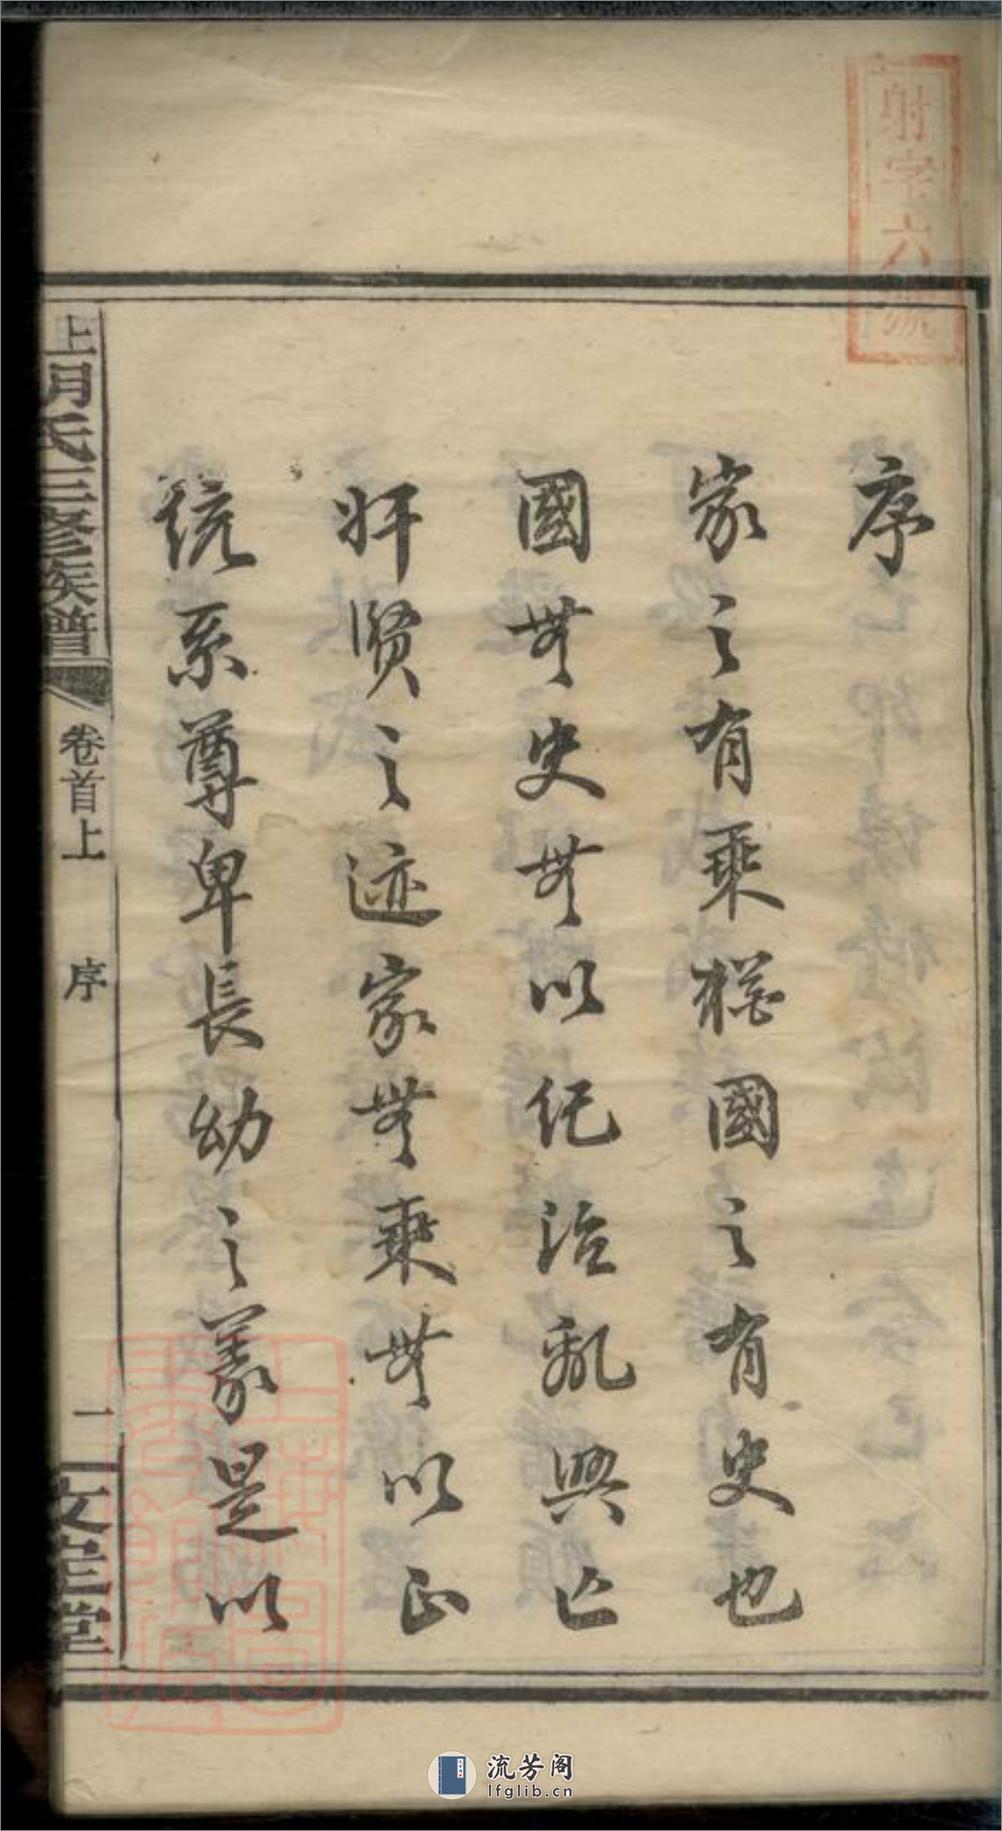 射字六號
序
家之有乘猶國之有史也
國無史無以紀治亂興亡
奸賢之迹家無乘無以正
統系尊卑長幼之義是以
氏三修族譜
卷首上
序
一
文定堂
流芳阁
lfglib.cn